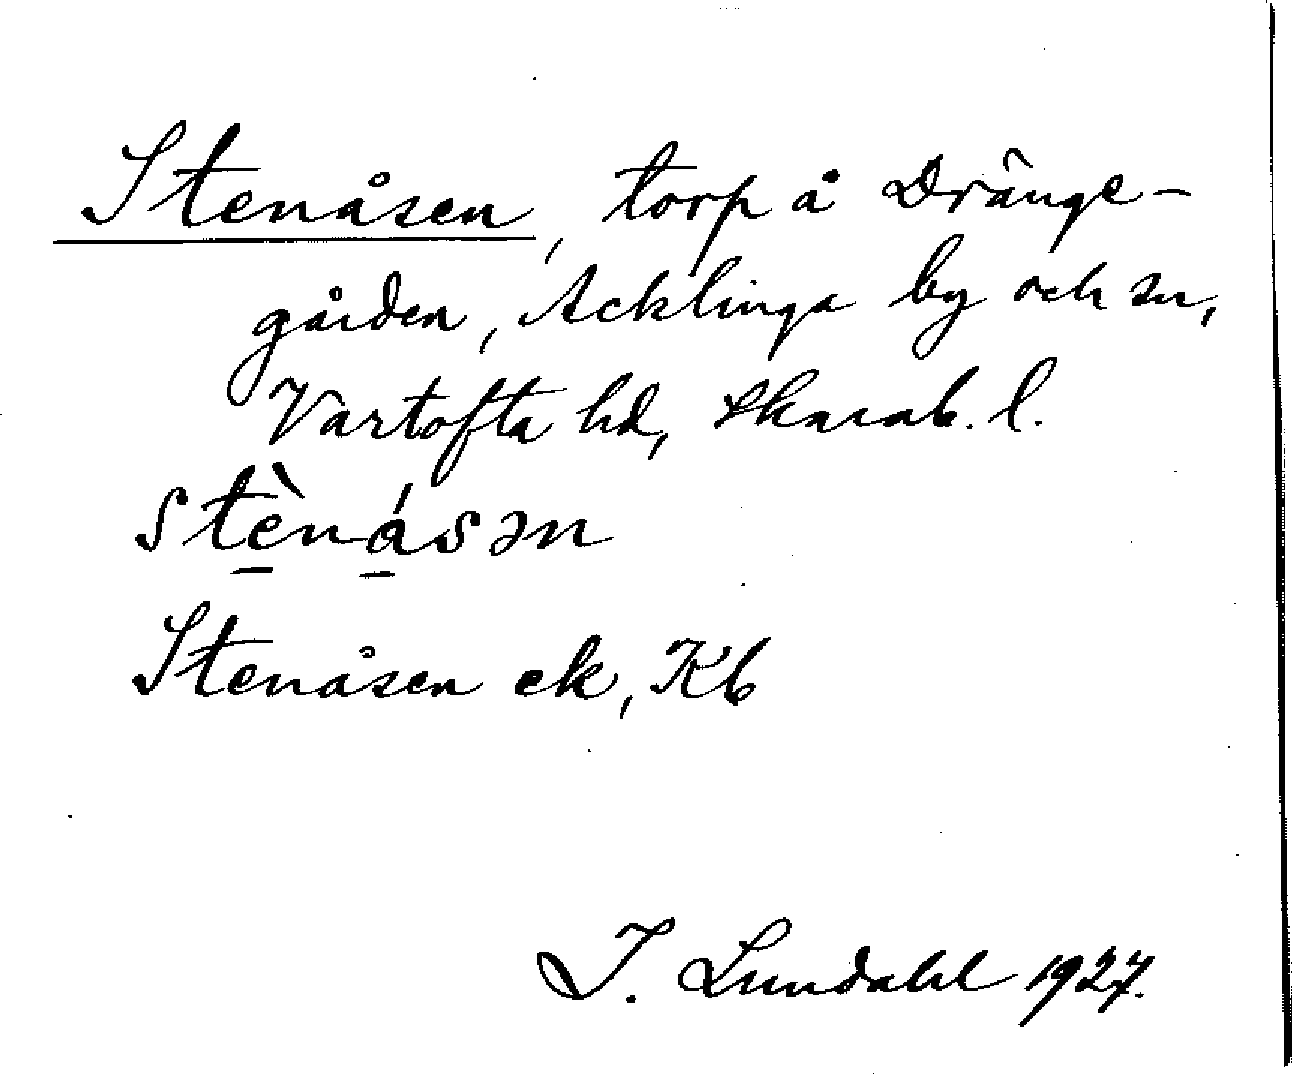 Stenåsen, torp å Dränge-
gården, Acklinga by och sn,
Vartofta hd, Skarab. l.
stè̱ná̱sən
Stenåsen ek, Kb
I. Lundahl 1927.